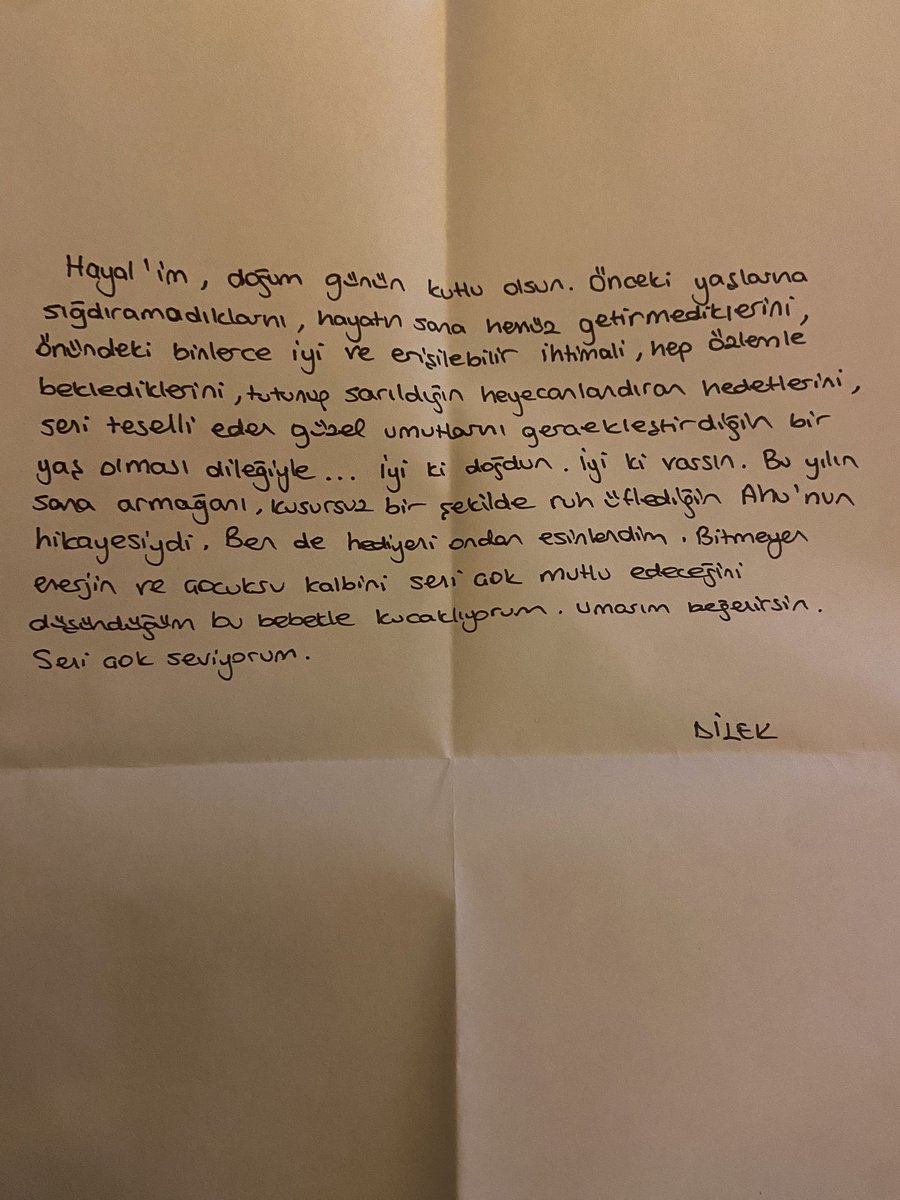 Hayal'im, doğum günün kutlu olsun. Önceki yaşlarına
sığdıramadıklarını, hayatın sana henüz getirmediklerini,
önündeki binlerce iyi ve erişilebilir ihtimali, hep özlemle
beklediklerini, tutunup sarıldığın heyecanlandıran hedeflerini,
seni teselli eden güzel umutlarını gerçekleştirdiğin bir
yaş olması dileğiyle... İyi ki doğdun. İyi ki varsın. Bu yılın
sana armağanı, kusursuz bir şekilde ruh üflediğin Ahu'nun
hikayesiydi. Ben de hediyeni ondan esinlendim. Bitmeyen
enerjin ve çocuksu kalbini seni çok mutlu edeceğini
düşündüğüm bu bebekle kucaklıyorum. Umarım beğenirsin.
Seni çok seviyorum.
DİLEK